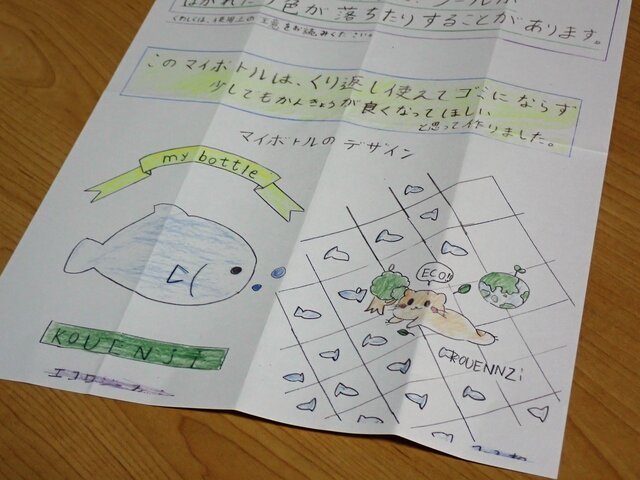 はがれたり色が落ちたりすることがあります。
くわしくは、使用上の注意をお読みください。
このマイボトルは、くり返し使えてゴミにならず
少しでもかんきょうが良くなってほしい
と思って作りました。
マイボトルのデザイン
my bottle
ECO!!
KOUENSI
ROUENNZi